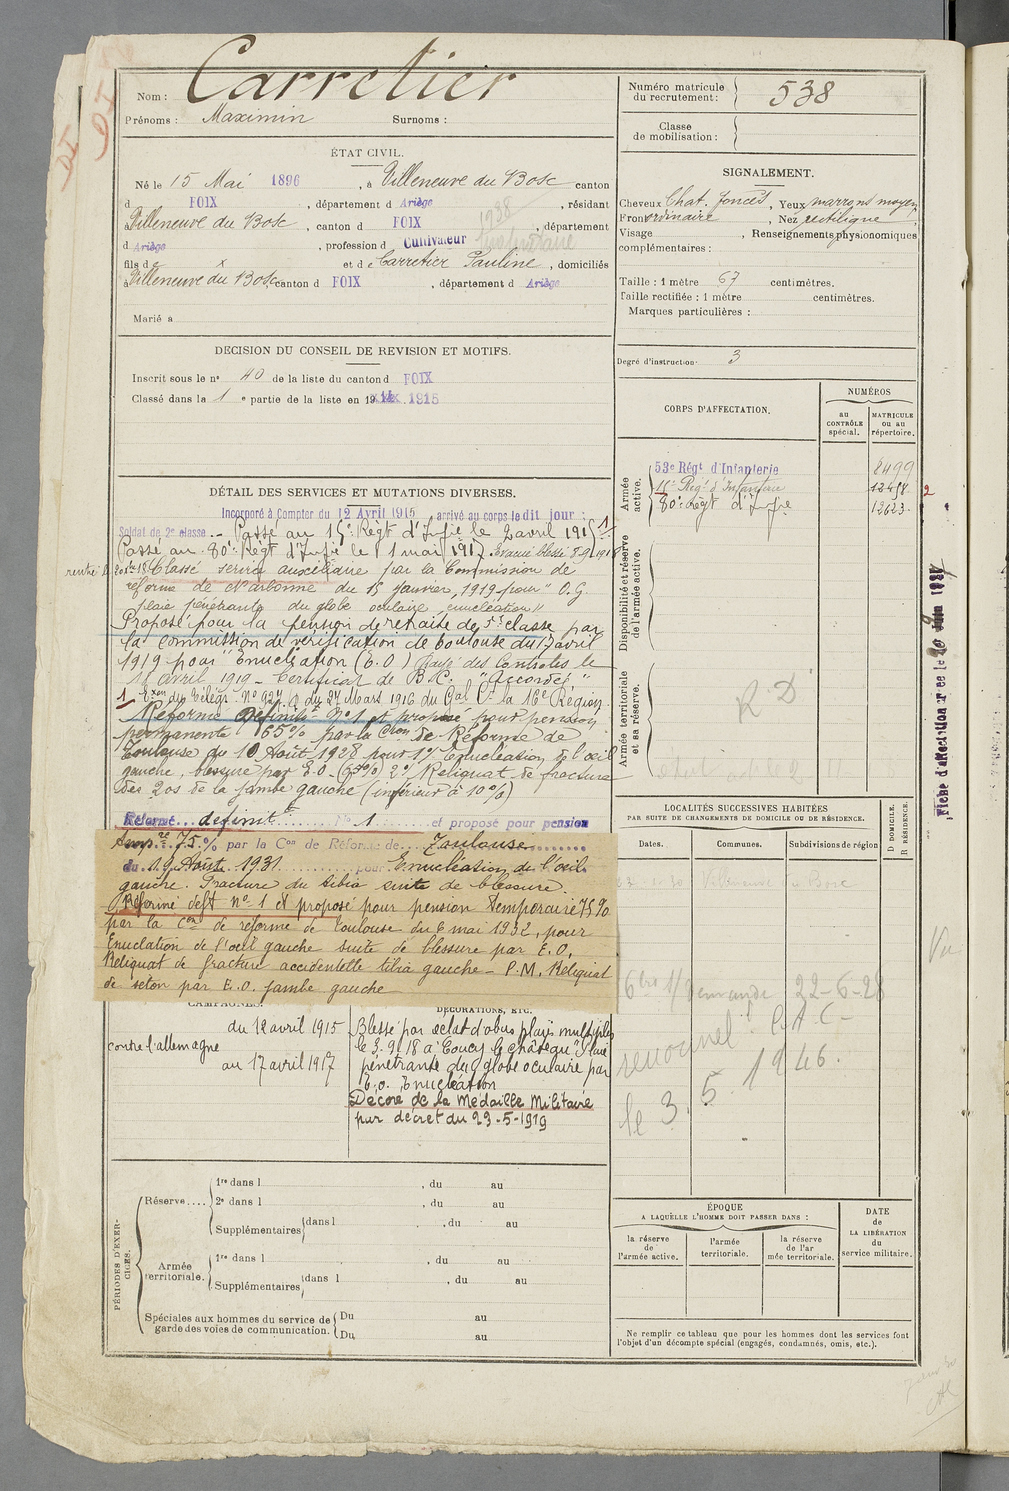 Nom : Carretier
Prénoms : Maximin Surnoms :
ÉTAT CIVIL.
Né le 15 Mai 1896, à Villeneuve du Bosc canton
d FOIX, département d Ariège, résidant
à Villeneuve du Bosc, canton d FOIX, département
d Ariège, profession d Cultivateur
1938
fils de x et de Carretier Pauline, domiciliés
à Villeneuve du Bosc, canton d FOIX, département d Ariège
Marié à
DECISION DU CONSEIL DE REVISION ET MOTIFS.
Inscrit sous le nº 40 de la liste du canton d FOIX
Classé dans la 1 e partie de la liste en 19 1915
DÉTAIL DES SERVICES ET MUTATIONS DIVERSES.
Incorporé à Compter du 12 Avril 1915 arrivé au corps le dit jour :
Soldat de 2e classe -- Passé au 15e Régt d'Infie le 2 avril 191 1
Passé au 80e Régt d'Infie le 1 mai 1917. Evacué blessé 3.9.1918
rentré Classé service auxiliaire par la Commission de
réforme de Narbonne du 15 janvier 1919 pour "O.G.
plaie pénétrante du globe oculaire, énucléation"
Proposé pour la pension de retraite de 5e classe par
la commission de vérification de Toulouse du 17 avril
1919 pour "Enucléation (E.O) Rayé des Controles le
avril 1919 - Certificat de B.C. "Accordé"
1 Exon du Télégr. Nº 927 du 27 Mars 1916 du Gal Ct la 16e Région.
Réformé Définitif Nº 1 et proposé pour pension
permanente 65% par la Cion de Réforme de
Toulouse du 10 Août 1928 pour 1º) Enucléation de l'œil
gauche, blessure par E.O. (65%) 2º) Reliquat de fracture
des 2 os de la jambe gauche (inférieur à 10%)
Réformé définitif Nº 1 et proposé pour pension
temp.re 75% par la Con de Réforme de Toulouse
du 19 Août 1931 pour Enucléation de l'œil
gauche. Fracture du tibia suite de blessure.
Réformé deft nº 1 et proposé pour pension temporaire 75%
par la Con de réforme de Toulouse du 6 mai 1932, pour
Enuclation de l'œil gauche suite de blessure par E.O,
Reliquat de fracture accidentelle tibia gauche - P.M. Reliquat
de séton par E.O. jambe gauche
CAMPAGNES.
contre l'allemagne
du 12 avril 1915
au 17 avril 1917
DÉCORATIONS, ETC.
Blessé par éclat d'obus plaies multiples
le 3.9.18 à Coucy le Château "Plaie
pénétrante du globe oculaire par
E.O. Enucléation
Décoré de la Médaille Militaire
par décret du 23-5-1919
PÉRIODES D'EXERCICES.
Réserve.... 1re dans l , du au
2e dans l , du au
Supplémentaires dans l , du au
Armée territoriale. 1re dans l , du au
Supplémentaires dans l , du au
Spéciales aux hommes du service de garde des voies de communication. Du au
Du au
Numéro matricule du recrutement : 538
Classe de mobilisation :
SIGNALEMENT.
Cheveux Chat. foncés, Yeux marrons moyen
Front ordinaire, Nez rectiligne
Visage , Renseignements physionomiques
complémentaires :
Taille : 1 mètre 67 centimètres.
Taille rectifiée : 1 mètre centimètres.
Marques particulières :
Degré d'instruction 3
CORPS D'AFFECTATION.
NUMÉROS
au CONTRÔLE spécial.
MATRICULE ou au répertoire.
Armée active.
53e Régt d'Infanterie 8499
15e Régt d'Infanterie 12458
80e Régt d'Infie 12623
2
Disponibilité et réserve de l'armée active.
Armée territoriale et sa réserve.
R D
LOCALITÉS SUCCESSIVES HABITÉES
PAR SUITE DE CHANGEMENTS DE DOMICILE OU DE RÉSIDENCE.
Dates. Communes. Subdivisions de région
D DOMICILE.
R RÉSIDENCE.
Villeneuve du Bosc
Demande 22-6-28
C.A.C-
le 3.5.1946.
Vu
ÉPOQUE
A LAQUELLE L'HOMME DOIT PASSER DANS :
la réserve de l'armée active.
l'armée territoriale.
la réserve de l'armée territoriale.
DATE de LA LIBÉRATION du service militaire.
Ne remplir ce tableau que pour les hommes dont les services font
l'objet d'un décompte spécial (engagés, condamnés, omis, etc.).